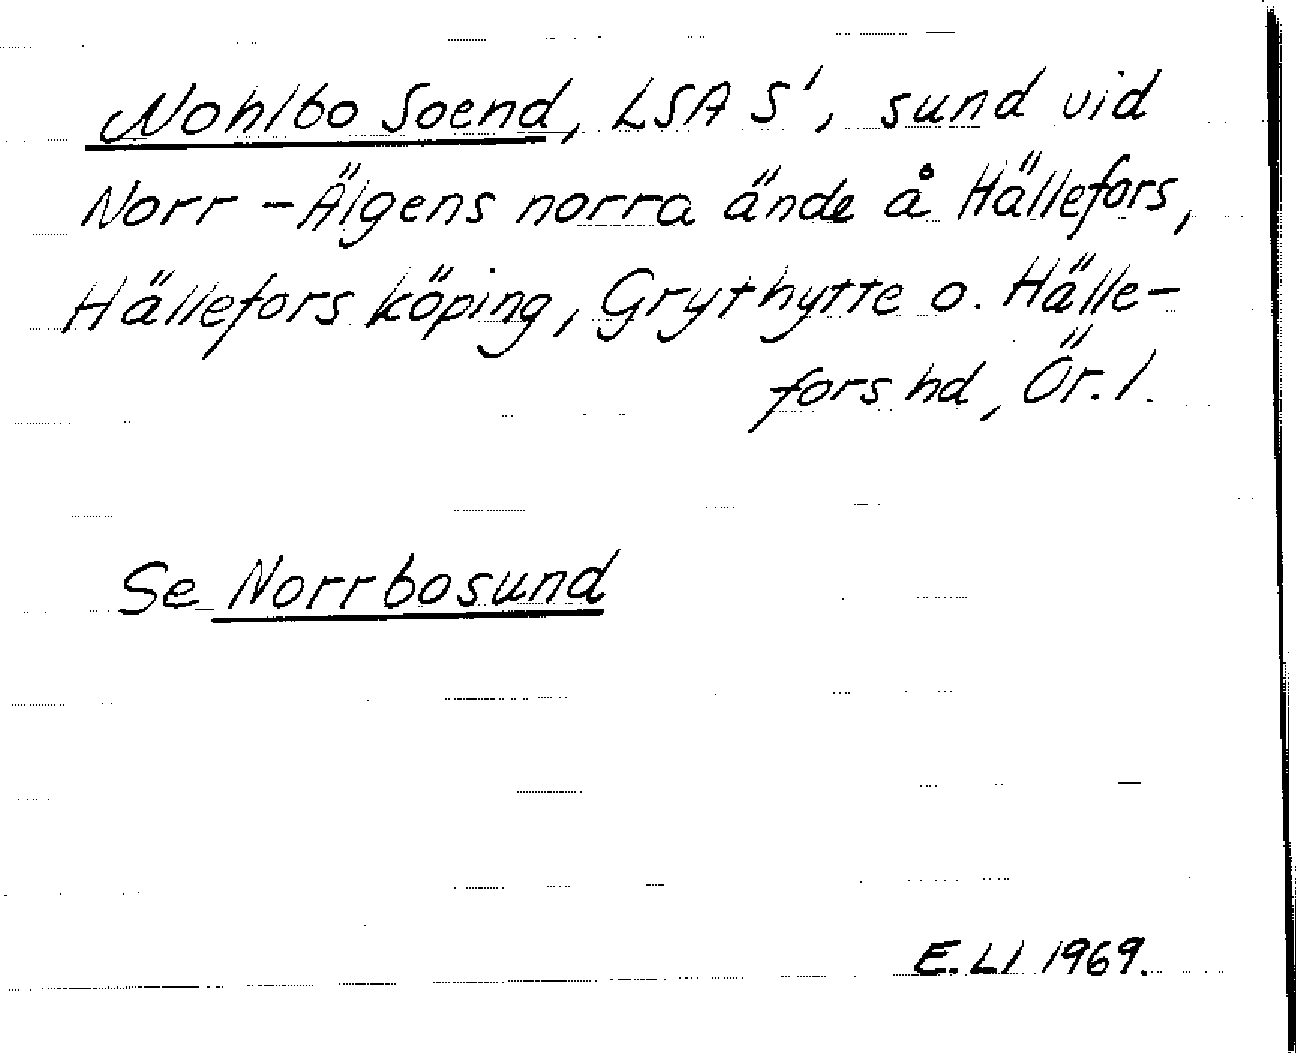 Nohlbo Soend, LSA S', sund vid
Norr-Älgens norra ände å Hällefors,
Hällefors köping, Grythytte o. Hälle-
fors hd, Ör. l.
Se Norrbosund
E. Ll 1969.